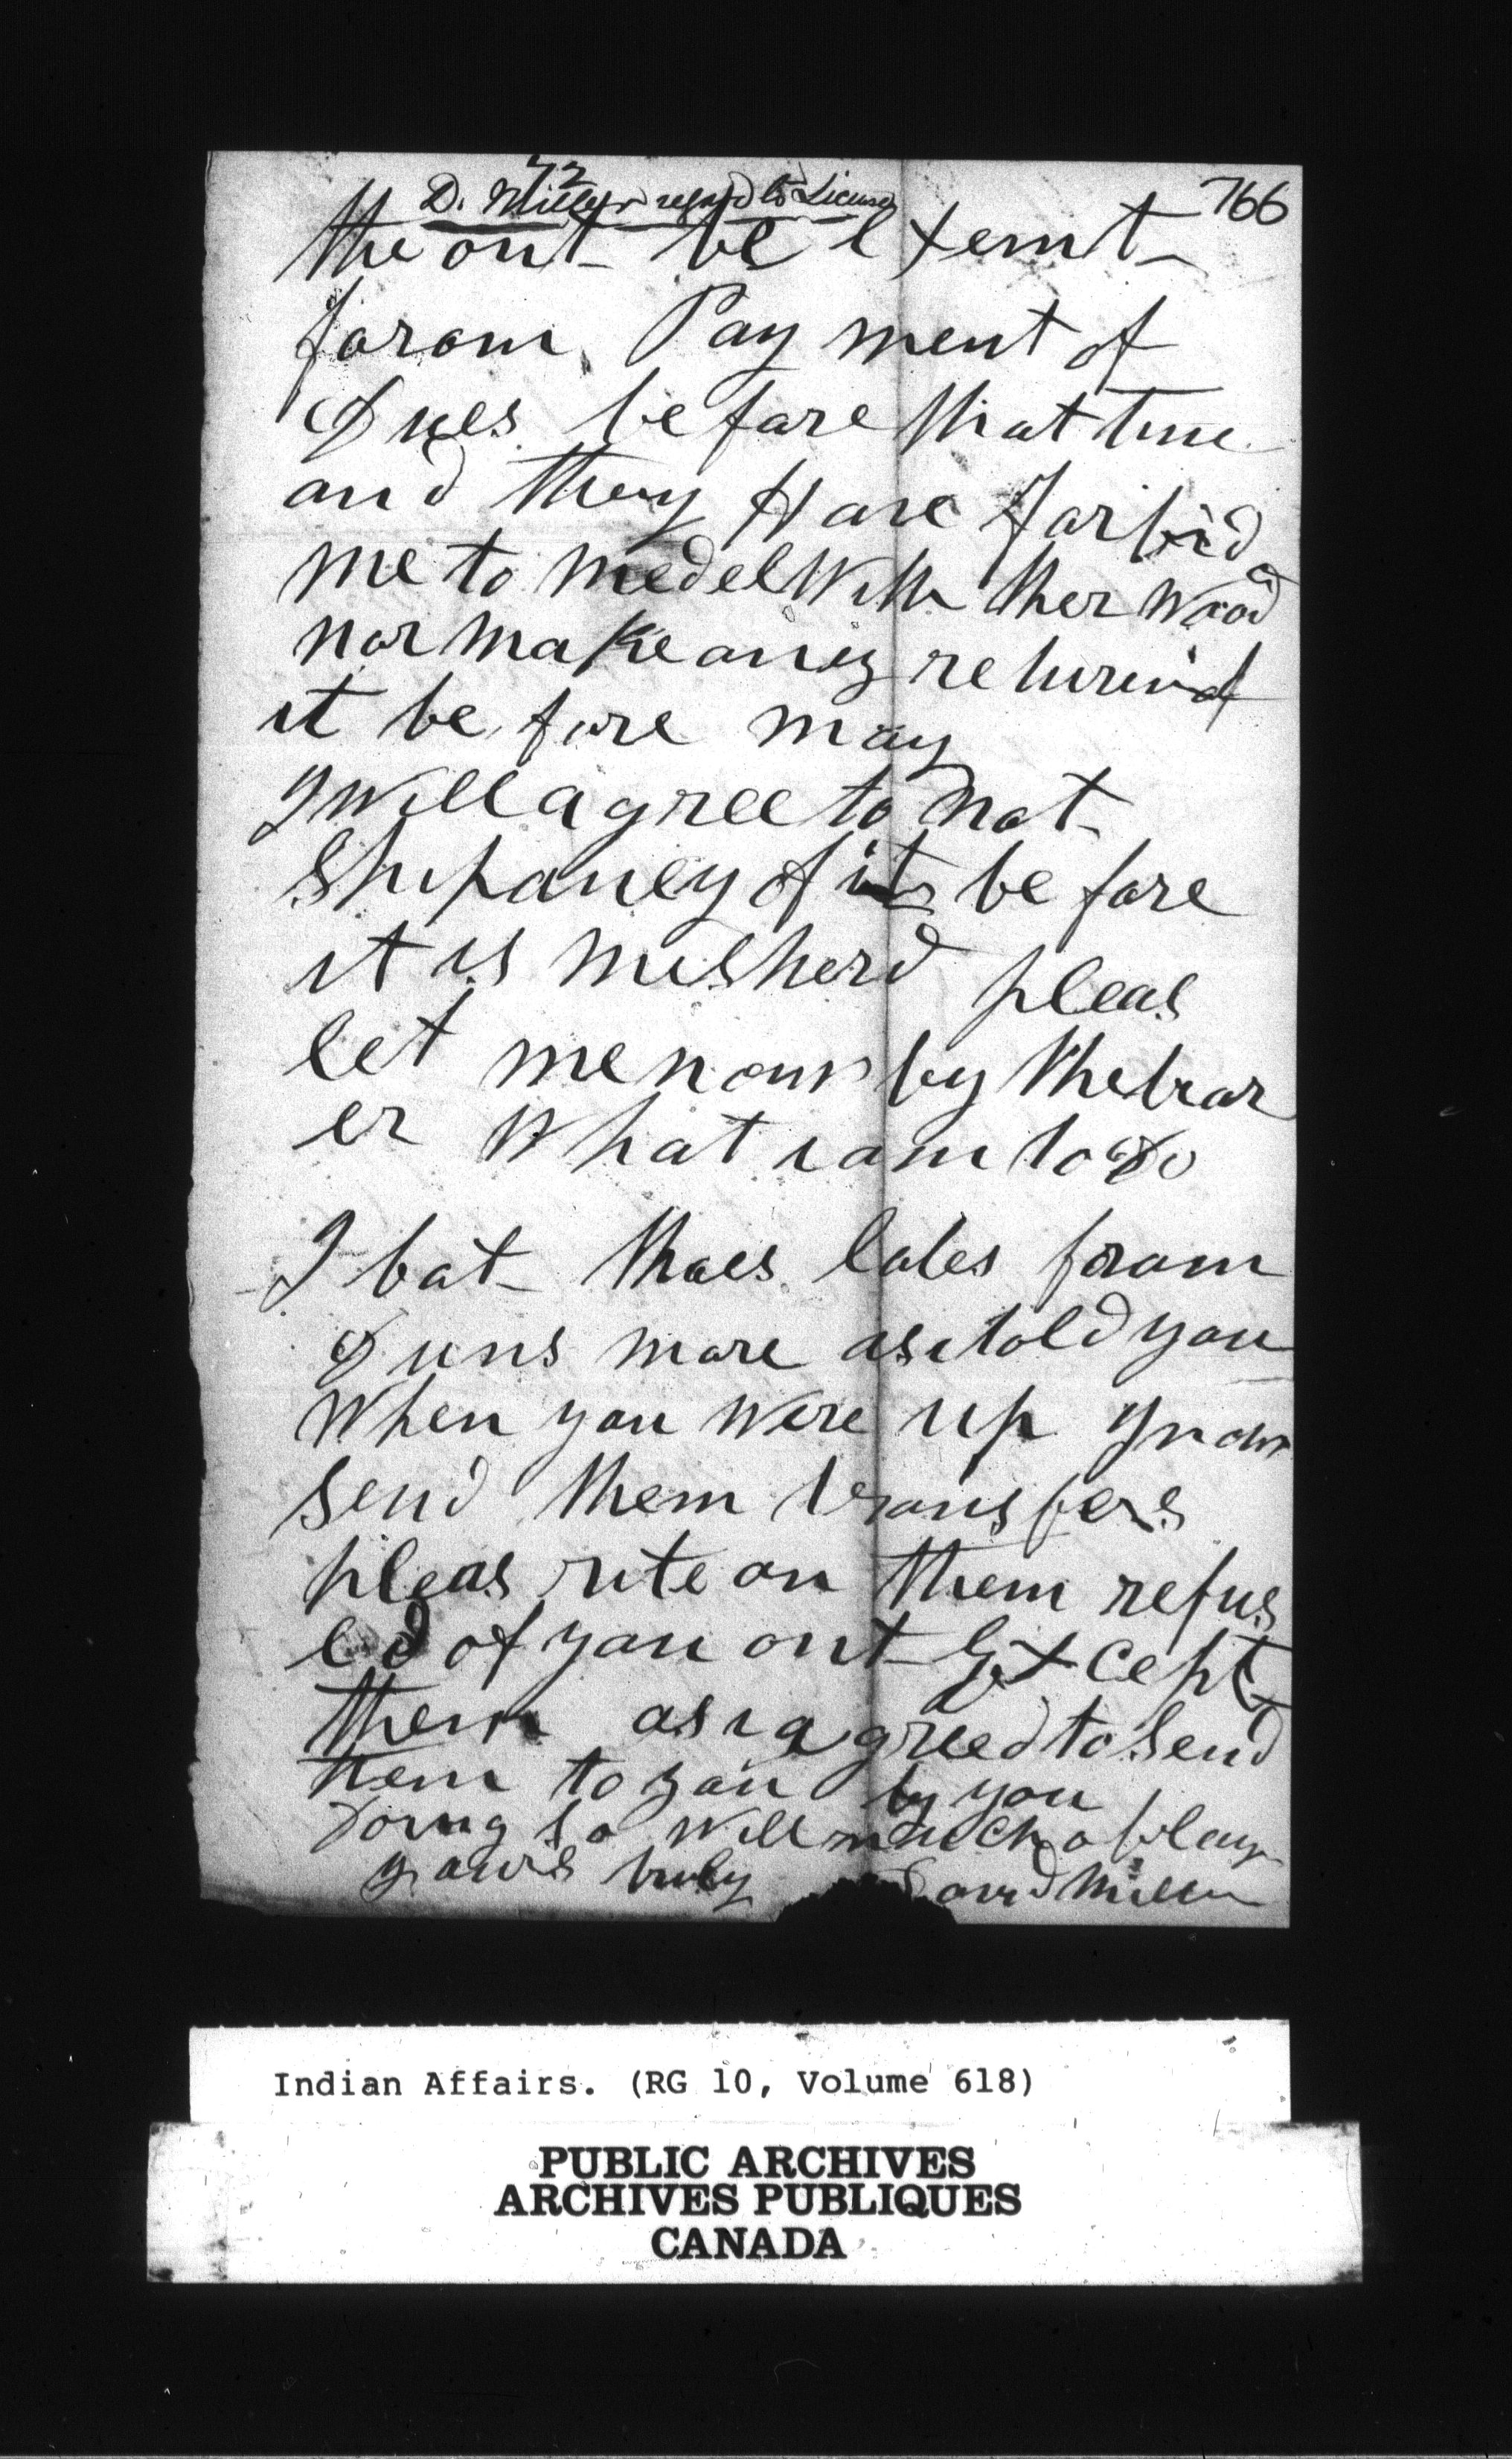 72
D. Miller regard to License
766
the ont be Extemt
foram Pay ment of
Dues be fare that time
and they Have Farbid
ed
me to medel With ther Wood
nor make aney returind of
it be fore may
I Will agree to not
Ship aney of it be fare
it is mesherd pleas
let me now by the brar
er What i am to Do
I bat thaes lotes foram
Duns mare as i told you
When you were up I now
send them transfers
pleas rite on them refus
ed of you ont Except
them as i agreed to Send
them to you by you
Doing so Will much oblay
yours truly David Miller
Indian Affairs. (RG 10, Volume 618)
PUBLIC ARCHIVES
ARCHIVES PUBLIQUES
CANADA